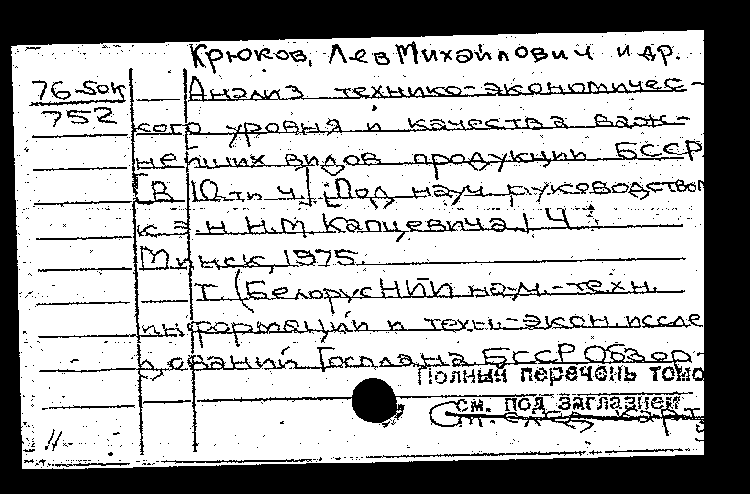 Крюков, Лев Михайлович и др.
76-5ок
752
Анализ технико-экономичес-
кого уровня и качества важ-
нейших видов продукции БССР
[В 10-ти ч.] [Под науч. руководством
к.э.н. Н.М. Капцевича] Ч
Минск, 1975.
т. (БелорусНИИ науч.-техн.
информации и техн.-экон. иссле
дований Госплана БССР Обзор-
Полный перечень томо
см. под заглавием
См. след. карт